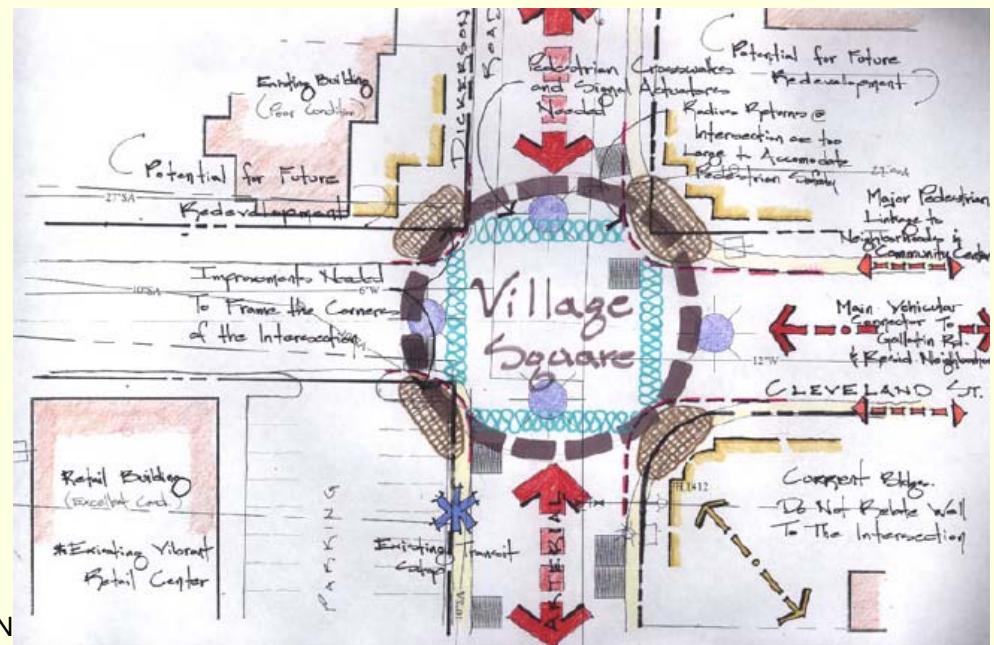 DICKERSON
ROAD
Existing Building
(Poor Condition)
Potential for Future
Redevelopment
27"SA
Pedestrian Crosswalks
and Signal Actuators
Needed
Potential for Future
Redevelopment
Radius Returns @
Intersection are too
Large to Accomodate
Pedestrian Safety
Major Pedestrian
Linkage to
Neighborhoods &
Community Center
Improvements Needed
To Frame the Corners
of the Intersection
10"SA
6"W
Village
Square
Main Vehicular
Connector To
Gallatin Rd.
12"W
CLEVELAND ST.
Retail Building
(Excellent Cond.)
*Existing Vibrant
Retail Center
PARKING
Existing Transit
Stop
10"SA
ARTERIAL
Current Bldgs.
Do Not Relate Well
To The Intersection
N